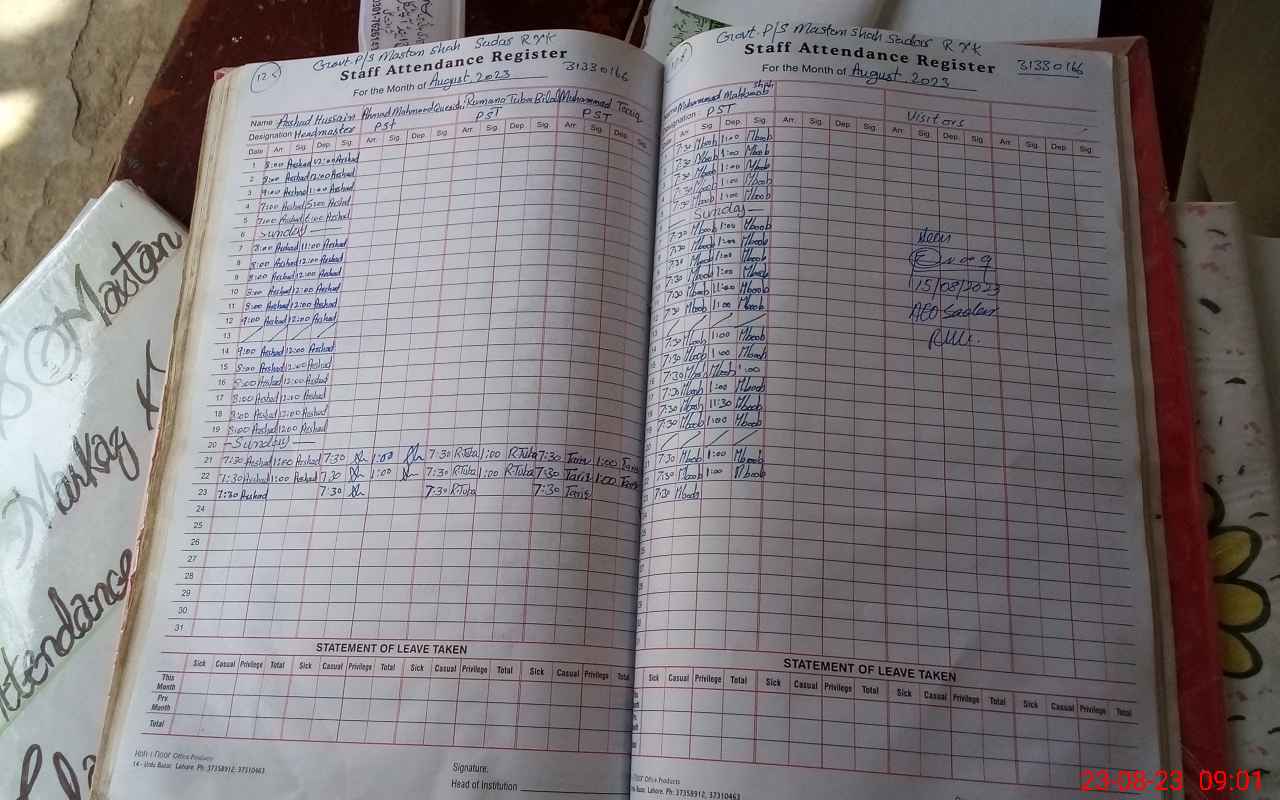 Govt. P/S Mastan Shah Sadas RYK
Staff Attendance Register
31330166
For the Month of August, 2023
Name Arshad Hussain Ahmad Mahmood Qureshi Rumana Tuba Bilal Muhammad Tariq
Designation Headmaster PST PST PST
Date Arr. Sig. Dep. Sig. Arr. Sig. Dep. Sig. Arr. Sig. Dep. Sig. Arr. Sig. Dep. Sig.
1 8:00 Arshad 12:00 Arshad
2 8:00 Arshad 12:00 Arshad
3 9:00 Arshad 1:00 Arshad
4 7:00 Arshad 5:00 Arshad
5 7:00 Arshad 6:00 Arshad
6 Sunday
7 8:00 Arshad 11:00 Arshad
8 8:00 Arshad 12:00 Arshad
9 8:00 Arshad 12:00 Arshad
10 8:00 Arshad 12:00 Arshad
11 8:00 Arshad 12:00 Arshad
12 9:00 Arshad 12:00 Arshad
13
14 9:00 Arshad 12:00 Arshad
15 8:00 Arshad 12:00 Arshad
16 8:00 Arshad 12:00 Arshad
17 8:00 Arshad 12:00 Arshad
18 8:00 Arshad 12:00 Arshad
19 8:00 Arshad 12:00 Arshad
20 Sunday
21 7:30 Arshad 1:00 Arshad 7:30 1:00 7:30 R.Tuba 1:00 R.Tuba 7:30 Tariq 1:00 Tariq
22 7:30 Arshad 1:00 Arshad 7:30 1:00 7:30 R.Tuba 1:00 R.Tuba 7:30 Tariq 1:00 Tariq
23 7:30 Arshad 7:30 7:30 R.Tuba 7:30 Tariq
24
25
26
27
28
29
30
31
STATEMENT OF LEAVE TAKEN
Sick Casual Privilege Total Sick Casual Privilege Total Sick Casual Privilege Total Sick Casual Privilege Total
This Month
Prv. Month
Total
Koh-i-Noor Office Products
14 - Urdu Bazar, Lahore. Ph: 37358912, 37310463
Signature:
Head of Institution
Govt. P/S Mastan Shah Sadas RYK
Staff Attendance Register
31330166
For the Month of August, 2023
Muhammad Mahboob Shah
Designation PST Visitors
Arr. Sig. Dep. Sig. Arr. Sig. Dep. Sig. Arr. Sig. Dep. Sig. Arr. Sig. Dep. Sig.
7:30 Mboob 1:00 Mboob
7:30 Mboob 1:00 Mboob
7:30 Mboob 1:00 Mboob
7:30 Mboob 1:00 Mboob
7:30 Mboob 1:00 Mboob
Sunday
7:30 Mboob 1:00 Mboob
7:30 Mboob 1:00 Mboob
7:30 Mboob 1:00 Mboob
7:30 Mboob 1:00 Mboob
7:30 Mboob 11:00 Mboob
7:30 Mboob 1:00 Mboob
7:30 Mboob 1:00 Mboob
7:30 Mboob 1:00 Mboob
7:30 Mboob Mboob 1:00
7:30 Mboob 1:00 Mboob
7:30 Mboob 11:30 Mboob
7:30 Mboob 1:00 Mboob
7:30 Mboob 1:00 Mboob
7:30 Mboob 1:00 Mboob
7:30 Mboob
Seen
15/08/2023
AEO Sadar
STATEMENT OF LEAVE TAKEN
Sick Casual Privilege Total Sick Casual Privilege Total Sick Casual Privilege Total Sick Casual Privilege Total
Noor Office Products
Urdu Bazar, Lahore. Ph: 37358912, 37310463
Mastan
Markaz
Attendance
23-08-23 09:01